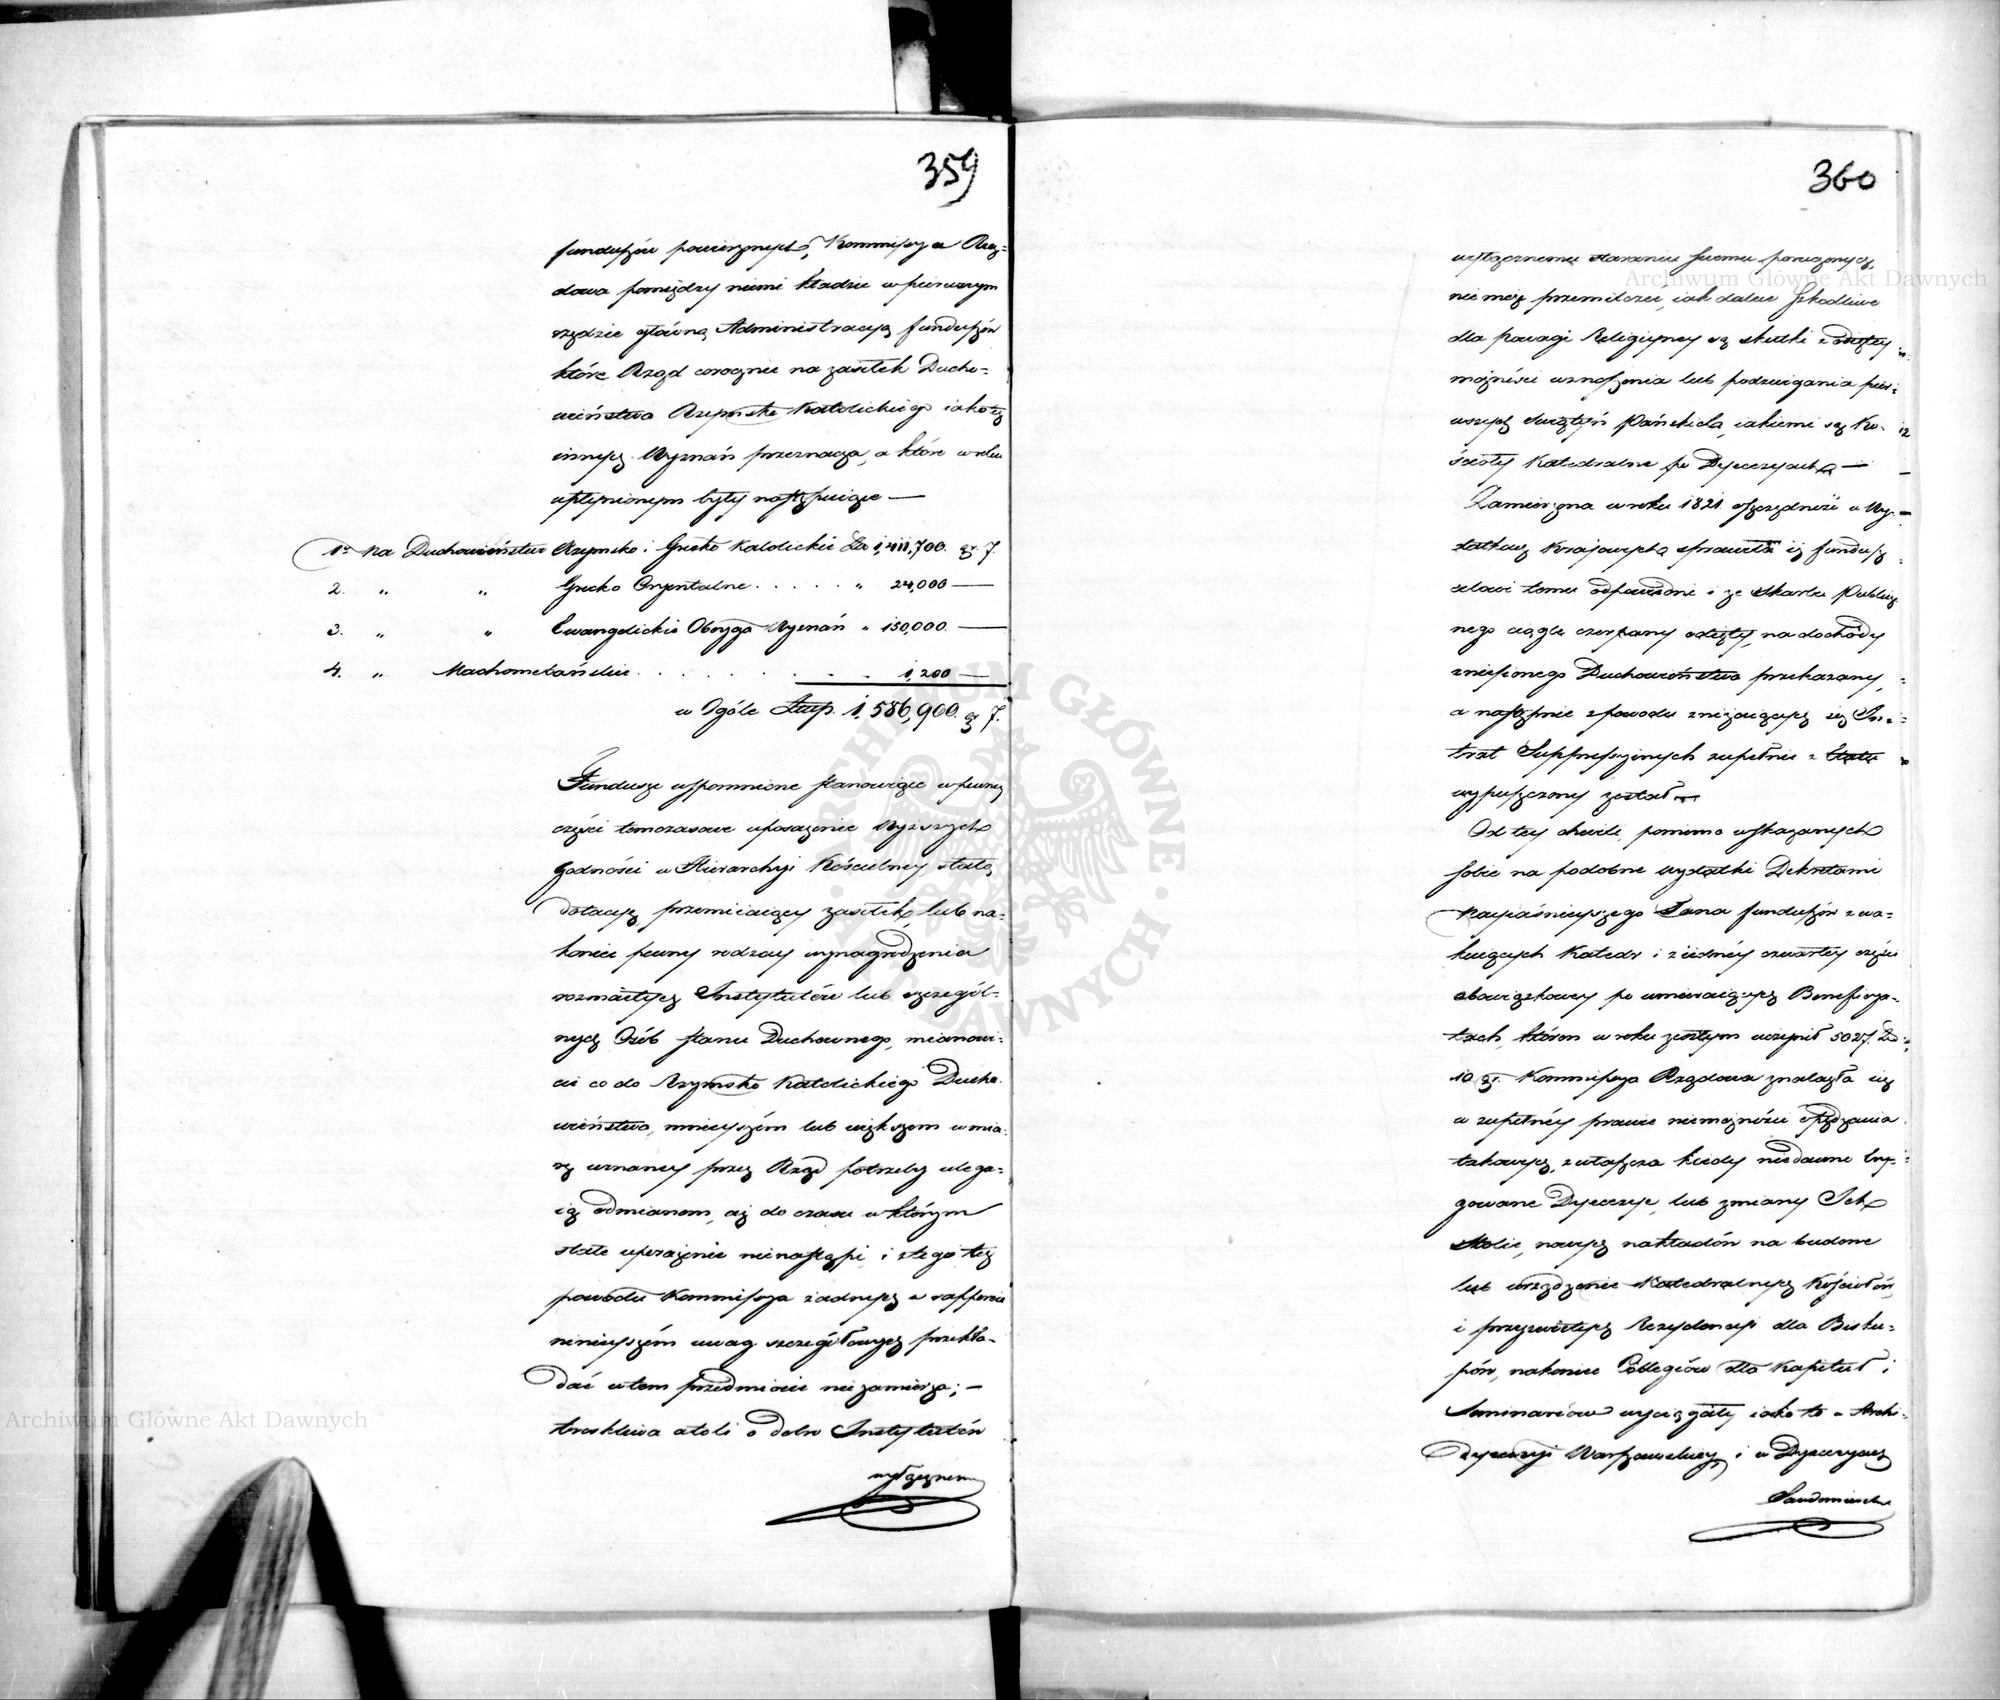 359
funduszów powierzonych, Kommissya Rzą=
dowa pomiędzy niemi kładzie w pierwszym
rzędzie główną Administracyą funduszów
które Rząd corocznie na zasiłek Ducho=
wieństwa Rzymsko Katolickiego iakoteż
innych Wyznań przeznacza, a które w roku
upłynionym były następuiące —
1º na Duchowieństwo Rzymsko i Grecko Katolickie Zł 1,411,700. gr 7.
2. " " Grecko Oryentalne . . . . . " 24,000 —
3. " " Ewangelickie Obojga Wyznań " 150,000. —
4. " Machometańskie . . . . . . . . 1,200 —
w Ogóle Złotp. 1,586,900. gr 7.
Fundusze wspomnione stanowiąc w pewney
części tomczasowe uposażenie Wyższych
godności w Hierarchyi Kościelney stałą
dotacyą przemieiaiący zasiłek, lub na=
koniec pewny rodzay wynagrodzenia
rozmaitych Instytutów lub szczegól=
nych Osób stanu Duchownego, mianowi=
cie co do Rzymsko Katolickiego Ducho=
wieństwa, mnieyszém lub większem w mia=
rę uznaney przez Rząd potrzeby ulega=
ią odmianom, aż do czasu w którym
stałe uposażenie nienastąpi, i z tego też
powodu Kommissya żadnych w rapporcie
ninieyszém uwag szczegółowych przekła=
dać w tem przedmiocie nie zamierza; —
troskliwa atoli o dobro Instytutów
wyłącznemu
360
wyłącznemu staraniu swemu poruczonych,
nie może przemilczeć, iak dalece szkodliwe
dla powagi Religiyney są skutki z odjętey
możności wznoszenia lub podzwigania pier=
wszych Świątyń Pańskich, iakiemi są Ko=
ścioły Katedralne po Dyecezyach —
Zamierzona w roku 1821 oszczędność w Wy=
datkach Kraiowych sprawiła iż fundusz
celowi temu odpowiedni i ze Skarbu Publicz
nego ciągle czerpany odięty, na dochody
zniesionego Duchowieństwa przekazany,
a następnie z powodu zniżaiących się In=
trat Suppressyinych zupełnie z Etatu
wypuszczony został —
Od tey chwili, pomimo wskazanych
sobie na podobne wydatki Dekretami
Nayiaśnieyszego Pana funduszów z wa=
kuiących Katedr i z iedney czwartey części
obowiązkowey po umieraiących Beneficya=
tach, któren w roku zeszłym uczynił 5027. Zł
10 gr. Kommissya Rządowa znalazła się
w zupełnéy prawie niemożności opędzania
takowych, zwłaszcza kiedy niedawne Ery=
gowane Dyecezye, lub zmiany Ich
Stolic, nowych nakładów na budowę
lub urządzenie Katedralnych Kościołów,
i przyzwoitych Rezydencyi dla Bisku=
pów, nakoniec Collegiów dla Kapituł i
Seminariów wyciągały iako to w Archi=
dyecezyi Warszawskiey, i w Dyecezyach
Sandomirskiey
Archiwum Główne Akt Dawnych
Archiwum Główne Akt Dawnych
ARCHIWUM GŁÓWNE AKT DAWNYCH